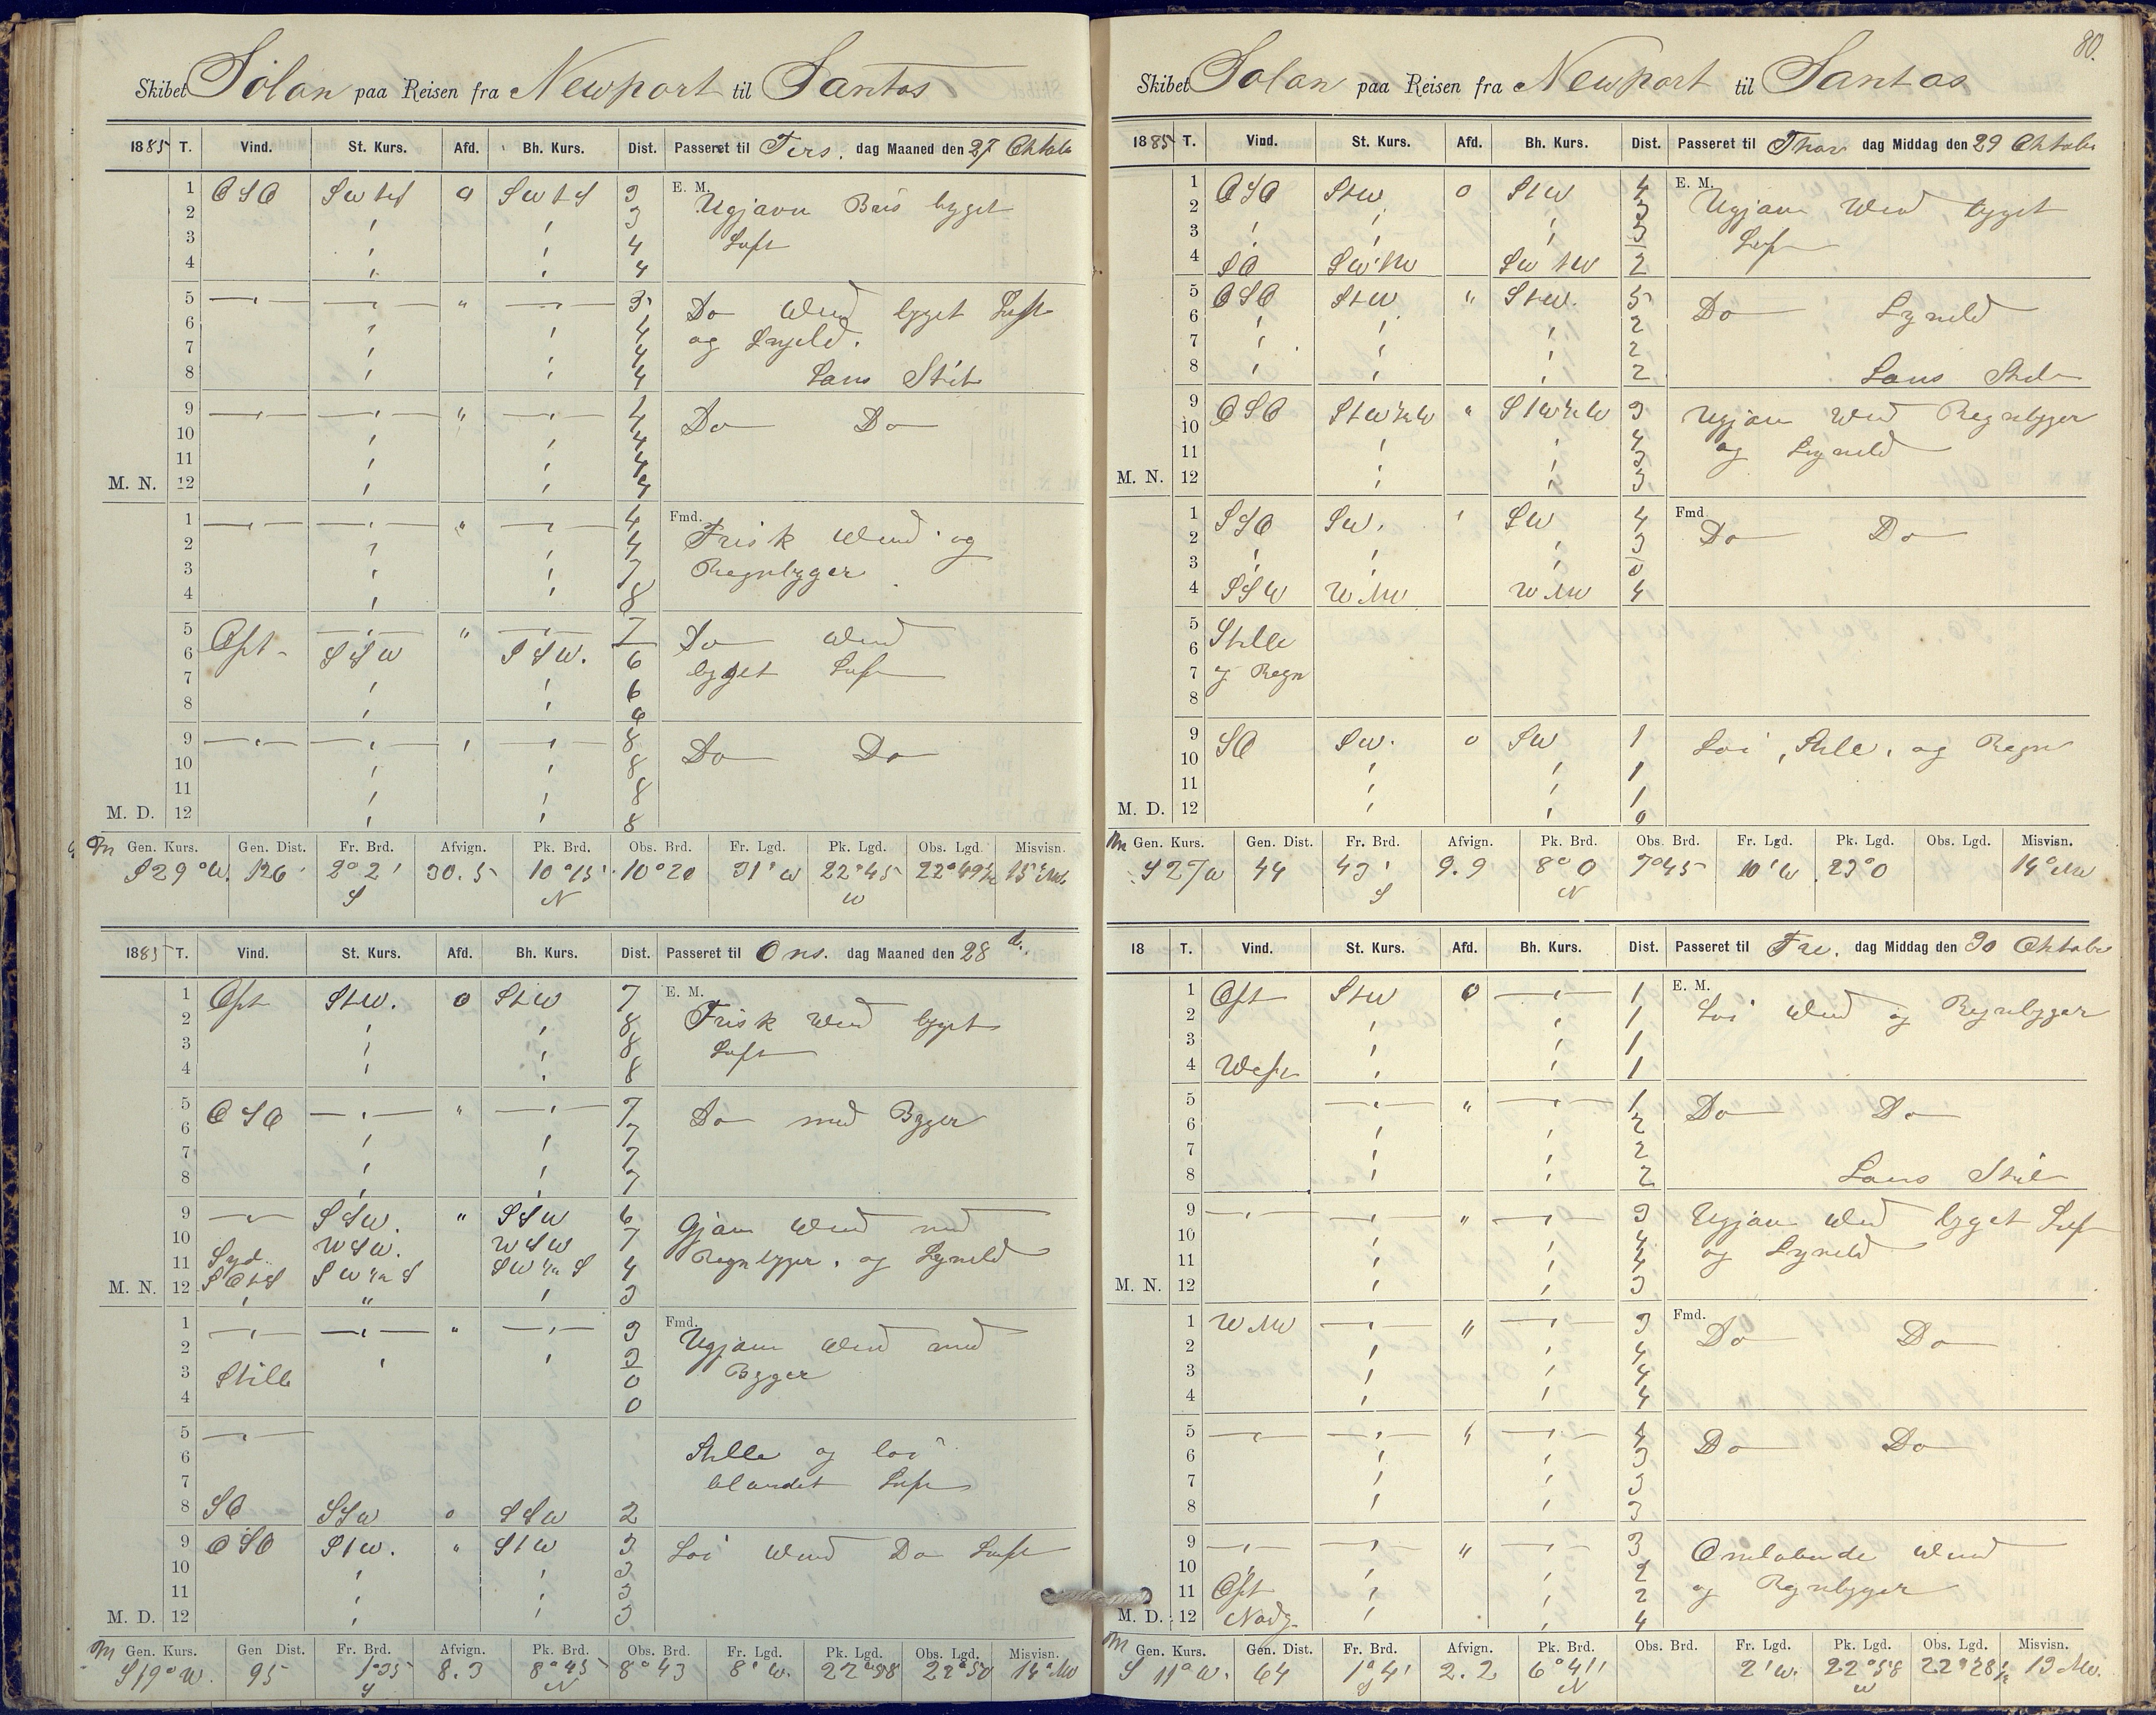 Skibet Solan paa Reisen fra Newport til Santos
1885 T. Vind. St. Kurs. Afd. Bh. Kurs. Dist. Passeret til Tirs. dag Maaned den 27 Oktob
E. M.
1 OSO SWtS 0 SWtS 3 Ugjævn Bris byget
2 3
3 4 Luft
4 4
5 " 3 Do Wind byget Luft
6 4 og Lynild.
7 4
8 4 Lans Skib
9 " 4 Do Do
10 4
11 4
M. N. 12 4
Fmd.
1 " 4 Frisk Wind og
2 4
3 7 Regnbyger
4 8
5 Ost " 7 Do Wind
6 SSW SSW. 6
7 6 byget Luft
8 6
9 8 Do Do
10 8
11 8
M. D. 12 8
Gen. Kurs. Gen. Dist. Fr. Brd. Afvign. Pk. Brd. Obs. Brd. Fr. Lgd. Pk. Lgd. Obs. Lgd. Misvisn.
S29°W. 126 2°2' 30.5 10°15' 10°20 31'W 22°45 22°49½ 15°
S N W
1885 T. Vind. St. Kurs. Afd. Bh. Kurs. Dist. Passeret til Ons. dag Maaned den 28 d.
E. M.
1 Ost StW. 0 StW 7 Frisk Wind byget
2 8
3 8 Luft
4 8
5 OSO " 7 Do med Byger
6 7
7 7
8 7
9 SSW. " SSW 6 Gjævn Wind med
10 WSW. WSW 7
11 Syd SW½S SW½S 4 Regnbyger, og Lynild
M. N. 12 SOtS " 3
Fmd.
1 " 3 Ugjævn Wind med
2 3
3 Stille 0 Byger
4 0
5
6 Stille og løi
7 blandet Luft
8 SO SSW 0 SSW 2
9 OSO StW. " StW 3 Løi Wind Do Luft
10 3
11 3
M. D. 12 3
Gen. Kurs. Gen Dist. Fr. Brd. Afvign. Pk. Brd. Obs. Brd. Fr. Lgd. Pk. Lgd. Obs. Lgd. Misvisn.
S19°W. 95 1°35 8.3 8°45 8°43 8'W. 22°58 22°50 14°NW
S N
80.
Skibet Solan paa Reisen fra Newport til Santos
1885 T. Vind. St. Kurs. Afd. Bh. Kurs. Dist. Passeret til Thors dag Middag den 29 Oktober
E. M.
1 OSO StW 0 StW 4 Ugjævn Wind byget
2 3
3 3 Luft
4 SO SWtW SWtW 2
5 OSO StW " StW. 5 Do Lynild
6 2
7 2
8 2 Lans Skib
9 OSO StW½W " StW½W 3 Ugjævn Wind Regnbyger
10 4
11 3 og Lynild
M. N. 12 3
Fmd
1 SSO SW. SW 4 Do Do
2 3
3 0
4 SSW WNW WNW 4
5
6 Stille
7 og Regn
8
9 SO SW. 0 SW 1 Løi, Stille, og Regn
10 1
11 1
M. D. 12 0
Gen. Kurs. Gen. Dist. Fr. Brd. Afvign. Pk. Brd. Obs. Brd. Fr. Lgd. Pk. Lgd. Obs. Lgd. Misvisn.
S27W 44 43' 9.9 8°0 7°45 10'W 23°0 14°NW
S N
18 T. Vind. St. Kurs. Afd. Bh. Kurs. Dist. Passeret til Fre. dag Middag den 30 Oktober
E. M.
1 Ost StW 0 1 Løi Wind og Regnbyger
2 1
3 1
4 West 1
5 " 1 Do Do
6 2
7 2
8 2 Lans Skib
9 " 3 Ugjævn Wind byget Luft
10 4
11 4 og Lynild
M. N. 12 3
Fmd.
1 WNW " 3 Do Do
2 4
3 4
4 4
5 " 4 Do Do
6 3
7 3
8 3
9 " 3 Omløbende Wind
10 2
11 Ost 2 og Regnbyger
M. D. 12 Nordg. 4
Gen. Kurs. Gen. Dist. Fr. Brd. Afvign. Pk. Brd. Obs. Brd. Fr. Lgd. Pk. Lgd. Obs. Lgd. Misvisn.
S 11°W. 64 1°4' 2.2 6°41' 2'W. 22°58 22°28½ 13 NW.
S N W